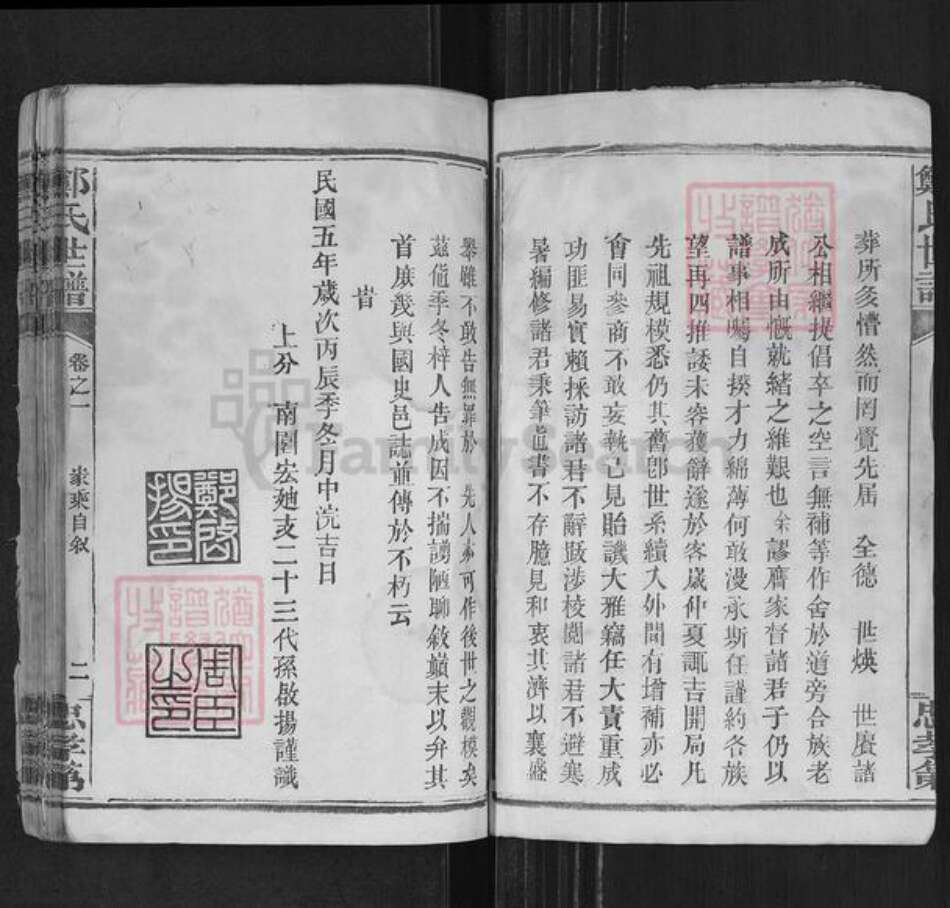 葬所多懵然而罔覺先届 全德 世煐 世賡諸
公相繼提倡卒之空言無補等作舍於道旁合族老
成所由慨就緒之維艱也余謬膺家督諸君子仍以
譜事相囑自揆才力綿薄何敢漫承斯任謹約各族
望再四推諉未容獲辭遂於客歲仲夏諏吉開局凡
先祖規模悉仍其舊卽世系續入外間有增補亦必
會同參商不敢妄執己見貽譏大雅竊任大責重成
功匪易實賴採訪諸君不辭跋涉校閱諸君不避寒
暑編修諸君秉筆直書不存臆見和衷共濟以襄盛
舉雖不敢告無罪於 先人亦可作後世之觀模矣
茲值季冬梓人告成因不揣譾陋聊敘巔末以弁其
首庶幾與國史邑誌並傳於不朽云
旹
民國五年歲次丙辰季冬月中浣吉日
上分 南園宏廸支二十三代孫啟揚謹識
鄭啓揚印
鄭氏世譜
卷之一
家乘自敘
二
忠孝第
FamilySearch